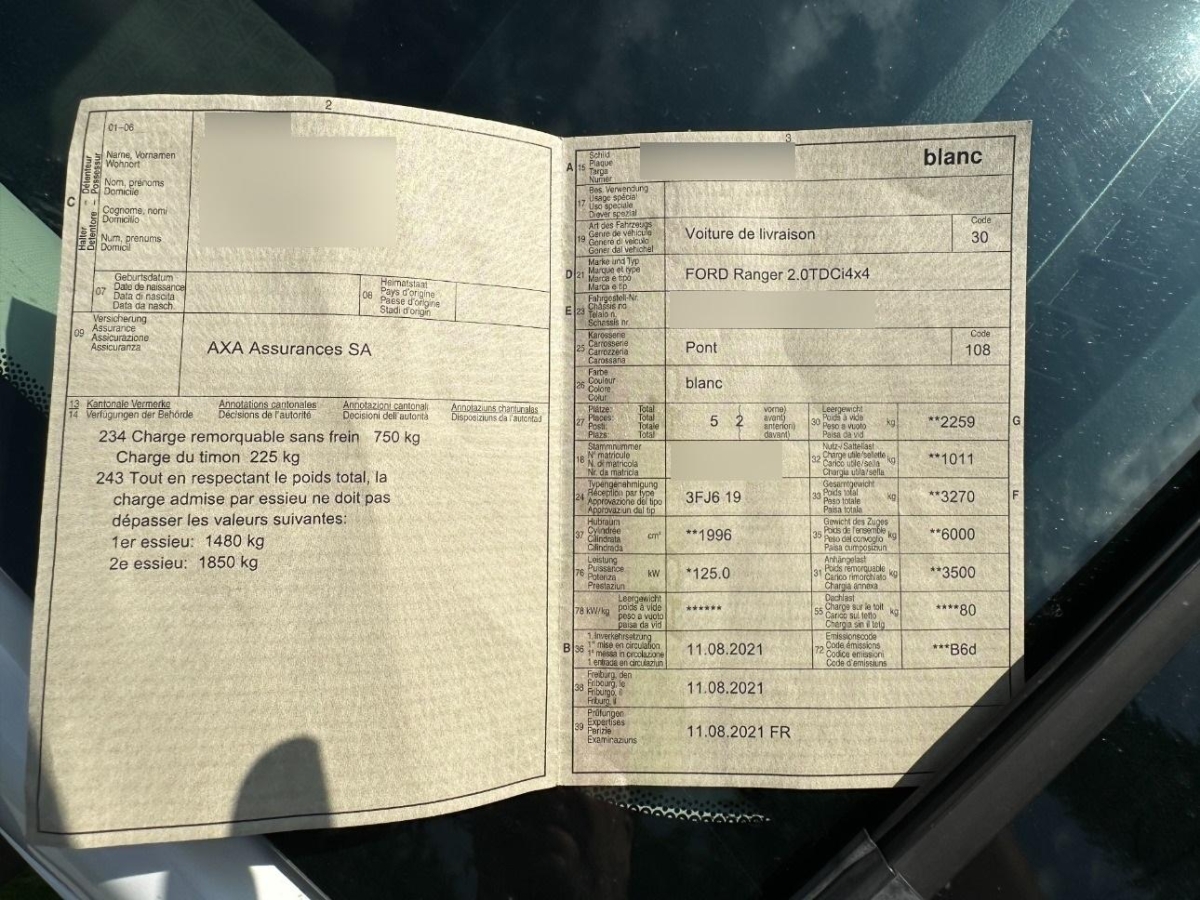 2
01-06
Halter - Détenteur
Detentore - Possessur
C
Name, Vornamen
Wohnort
Nom, prénoms
Domicile
Cognome, nomi
Domicilio
Num, prenums
Domicil
07
Geburtsdatum
Date de naissance
Data di nascita
Data da nasch.
08
Heimatstaat
Pays d'origine
Paese d'origine
Stadi d'origin
09
Versicherung
Assurance
Assicurazione
Assicuranza
AXA Assurances SA
13 Kantonale Vermerke Annotations cantonales Annotazioni cantonali Annotaziuns chantunalas
14 Verfügungen der Behörde Décisions de l'autorité Decisioni dell'autorità Disposiziuns da l'autoritad
234 Charge remorquable sans frein 750 kg
Charge du timon 225 kg
243 Tout en respectant le poids total, la
charge admise par essieu ne doit pas
dépasser les valeurs suivantes:
1er essieu: 1480 kg
2e essieu: 1850 kg
3
A 15
Schild
Plaque
Targa
Numer
blanc
17
Bes. Verwendung
Usage spécial
Uso speciale
Diever spezial
19
Art des Fahrzeugs
Genre de véhicule
Genere di veicolo
Gener dal vehichel
Voiture de livraison
Code
30
D 21
Marke und Typ
Marque et type
Marca e tipo
Marca e tip
FORD Ranger 2.0TDCi4x4
E 23
Fahrgestell-Nr.
Châssis no
Telaio n.
Schassis nr.
25
Karosserie
Carrosserie
Carrozzeria
Carossaria
Pont
Code
108
26
Farbe
Couleur
Colore
Colur
blanc
27
Plätze: Total
Places: Total
Posti: Totale
Plazs: Total
5 2
vorne)
avant)
anteriori)
davant)
30
Leergewicht
Poids à vide
Peso a vuoto
Paisa da vid
kg
**2259
G
18
Stammnummer
N° matricule
N. di matricola
Nr. da matricla
32
Nutz-/Sattellast
Charge utile/sellette
Carico utile/sella
Chargia utila/sella
kg
**1011
24
Typengenehmigung
Réception par type
Approvazione del tipo
Approvaziun dal tip
3FJ6 19
33
Gesamtgewicht
Poids total
Peso totale
Paisa totala
kg
**3270
F
37
Hubraum
Cylindrée
Cilindrata
Cilindrada
cm³
**1996
35
Gewicht des Zuges
Poids de l'ensemble
Peso del convoglio
Paisa cumposiziun
kg
**6000
76
Leistung
Puissance
Potenza
Prestaziun
kW
*125.0
31
Anhängelast
Poids remorquable
Carico rimorchiato
Chargia annexa
kg
**3500
78 kW/kg
Leergewicht
poids à vide
peso a vuoto
paisa da vid
******
55
Dachlast
Charge sur le toit
Carico sul tetto
Chargia sin il tetg
kg
****80
B 36
1. Inverkehrsetzung
1re mise en circulation
1a messa in circolazione
1 entrada en circulaziun
11.08.2021
72
Emissionscode
Code émissions
Codice emissioni
Code d'emissiuns
***B6d
38
Freiburg, den
Fribourg, le
Friburgo, il
Friburg, il
11.08.2021
39
Prüfungen
Expertises
Perizie
Examinaziuns
11.08.2021 FR